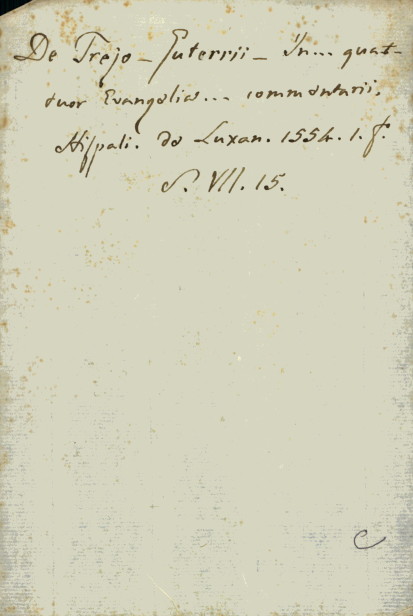 De Trejo - Guterrii - In... quat-
tuor Evangelia... commentarii.
Hispali. de Luxan. 1554. 1. f.
S. VII. 15.
C